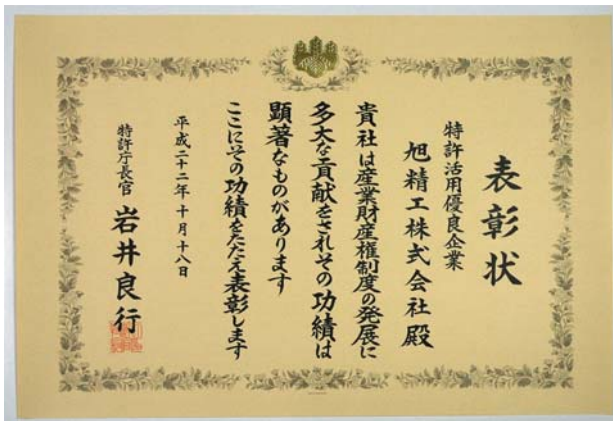 表彰状
特許活用優良企業
旭精工株式会社殿
貴社は産業財産権制度の発展に
多大な貢献をされその功績は
顕著なものがあります
ここにその功績をたたえ表彰します
平成二十二年十月十八日
特許庁長官 岩井良行